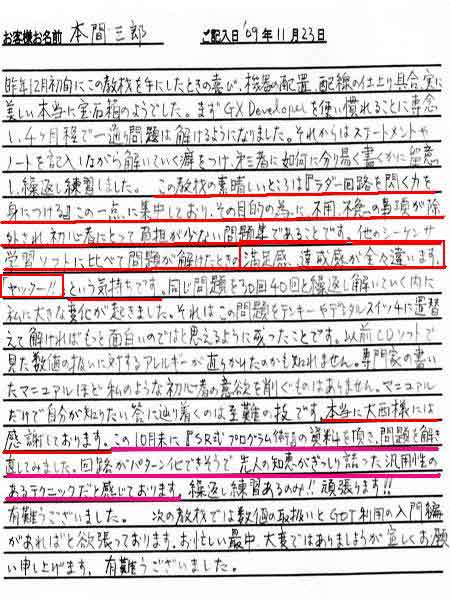 お客様お名前 本間三郎 ご記入日 '09年11月23日
昨年12月初旬にこの教材を手にしたときの喜び、機器の配置、配線の仕上り具合、実に
美しい本当に宝石箱のようでした。まずGX Developerを使い慣れることに専念
し、4ヶ月程で一通り問題は解けるようになりました。それからはステートメントや
ノートを記入しながら解いていく癖をつけ、第三者に如何に分り易く書くかに留意
し、繰返し練習しました。 この教材の素晴しいところは『ラダー回路を開く力を
身につける』この一点に集中しており、その目的の為に不用、不急の事項が除
外され、初心者にとって負担が少ない問題集であることです。他のシーケンサ
学習ソフトに比べて問題が解けたときの満足感、達成感が全々違います。
ヤッター!! という気持ちです。同じ問題を30回40回と繰返し解いていく内に
私に大きな変化が起きました。それはこの問題をテンキーやデジタルスイッチに置替
えて解ければもっと面白いのではと思えるように成ったことです。以前CDソフトで
見た数値の扱いに対するアレルギーが和らかげたのかも知れません。専門家の書い
たマニュアルほど私のような初心者の意欲を削ぐものはありません。マニュアル
だけで自分が知りたい答に辿り着くのは至難の技です。本当に大西様には
感謝しております。この10月末に『SR式プログラム術』の資料を頂き、問題を解き
直してみました。回路がパターン化できそうで先人の知恵がぎっしり詰った汎用性の
あるテクニックだと感じております。繰返し練習あるのみ!! 頑張ります!!
有難うございました。 次の教材では数値の取扱いとGOT利用の入門編
があればと欲張っております。お忙しい最中、大変ではありましょうが宜しくお願
い申し上げます。有難うございました。